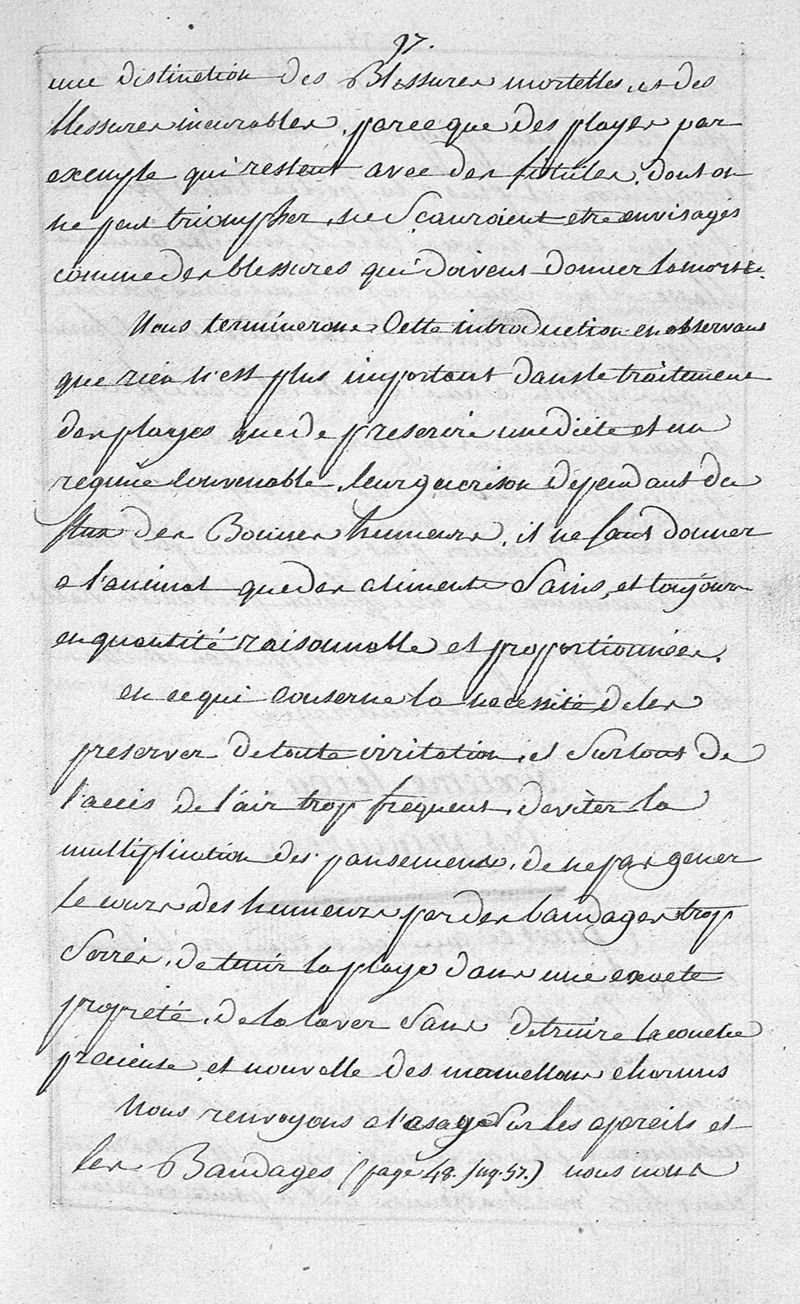 97.
une distinction des Blessures mortelles, et des
blessures incurables, parceque des playes par
exemple qui restent avec des fistules, dont on
ne peut triompher, ne scauroient etre envisagés
comme des blessures qui doivent donner la mort.
Nous terminerons cette introduction en observant
que rien n'est plus important dans le traitement
des playes que de prescrire une diète et un
regime convenable, leur guerison dependant du
flux des Bonnes humeurs, il ne faut donner
a l'animal que des aliments sains, et toujours
en quantité raisonnable et proportionnées.
en ce qui conserne la necéssité de les
preserver de toutte irritation, et surtout de
l'accès de l'air trop frequent, d'eviter la
multiplication des pansements, de ne pas gener
le cours des humeurs par des bandages trop
serrés, de tenir la playe dans une exacte
propreté, de la laver sans detruire la couche
précieuse, et nouvelle des mamellons charnus
Nous renvoyons a l'asage sur les apareils et
les Bandages (page 48. jug. 57.) nous nous